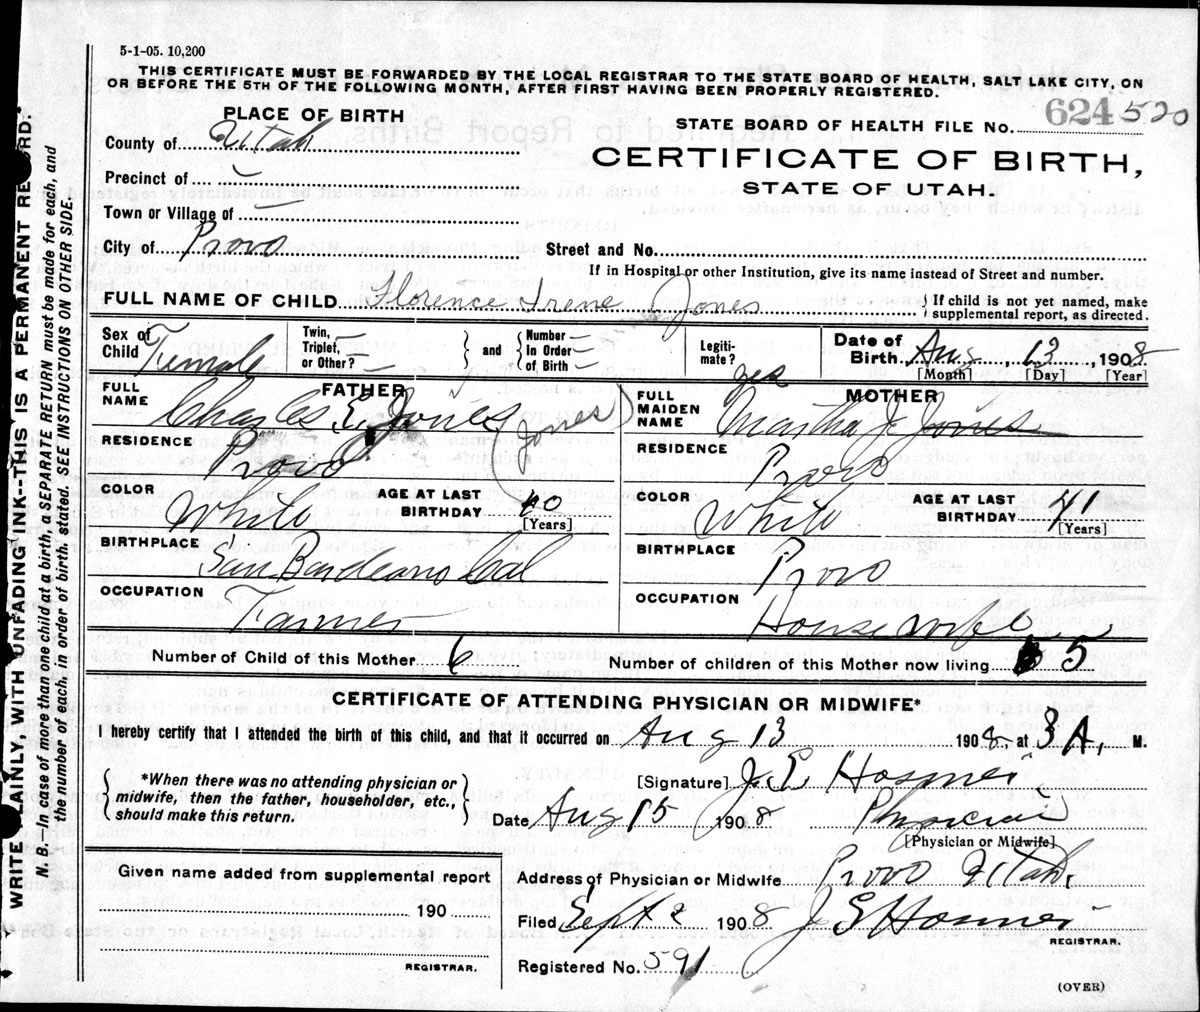 5-1-05. 10,200
THIS CERTIFICATE MUST BE FORWARDED BY THE LOCAL REGISTRAR TO THE STATE BOARD OF HEALTH, SALT LAKE CITY, ON
OR BEFORE THE 5TH OF THE FOLLOWING MONTH, AFTER FIRST HAVING BEEN PROPERLY REGISTERED.
PLACE OF BIRTH
STATE BOARD OF HEALTH FILE No. 624 520
County of Utah
CERTIFICATE OF BIRTH,
STATE OF UTAH.
Precinct of —
Town or Village of —
City of Provo
Street and No.
If in Hospital or other Institution, give its name instead of Street and number.
FULL NAME OF CHILD Florence Irene Jones
{ If child is not yet named, make
supplemental report, as directed.
Sex of Child Female
Twin, Triplet, or Other? —
} and { Number — In Order — of Birth —
Legiti-mate? yes
Date of Birth Aug 13 1908
[Month] [Day] [Year]
FATHER
FULL NAME Charles E. Jones (Jones)
RESIDENCE Provo
COLOR White
AGE AT LAST BIRTHDAY 40 [Years]
BIRTHPLACE San Bardeano Cal
OCCUPATION Farmer
MOTHER
FULL MAIDEN NAME Martha J. Jones
RESIDENCE Provo
COLOR White
AGE AT LAST BIRTHDAY 41 [Years]
BIRTHPLACE Provo
OCCUPATION Housewife
Number of Child of this Mother 6
Number of children of this Mother now living 5
CERTIFICATE OF ATTENDING PHYSICIAN OR MIDWIFE*
I hereby certify that I attended the birth of this child, and that it occurred on Aug 13 1908, at 3 A. M.
{ *When there was no attending physician or
midwife, then the father, householder, etc.,
should make this return. }
[Signature] J. E. Hosmer
Date Aug 15 1908 Physician
[Physician or Midwife]
Given name added from supplemental report
190
REGISTRAR.
Address of Physician or Midwife Provo Utah.
Filed Sept 2 1908 J E Hosmer
REGISTRAR.
Registered No. 591
(OVER)
WRITE PLAINLY WITH UNFADING INK--THIS IS A PERMANENT RECORD.
N. B. In case of more than one child at a birth, a SEPARATE RETURN must be made for each, and
the number of each, in order of birth, stated. SEE INSTRUCTIONS ON OTHER SIDE.